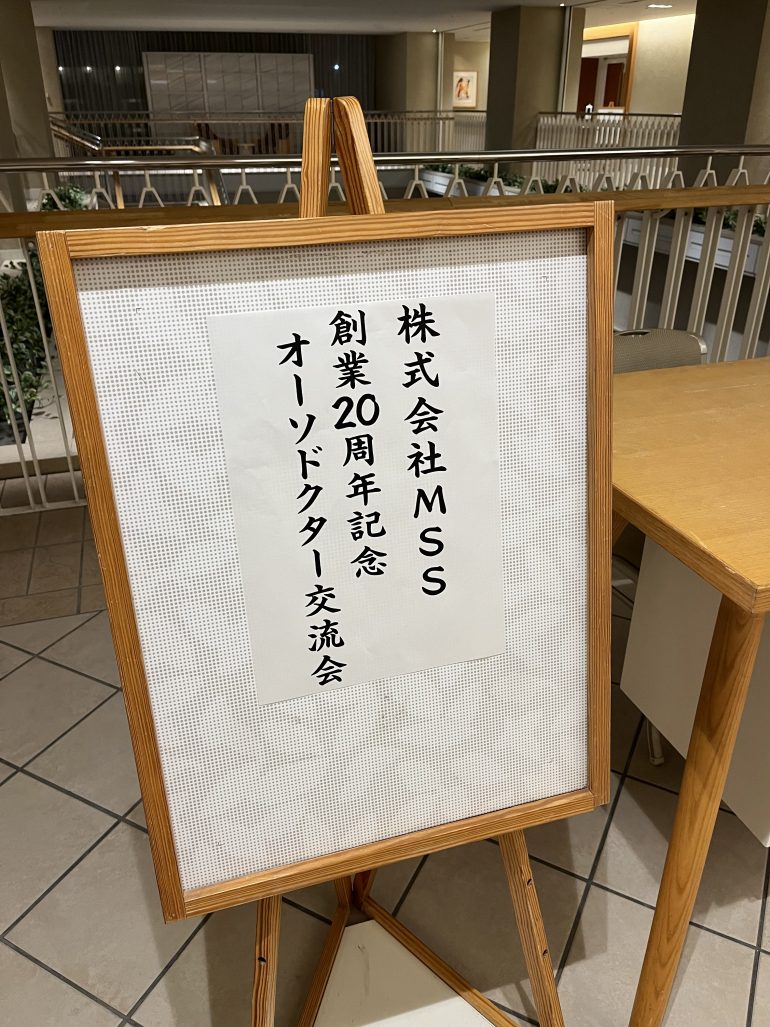 株式会社MSS
創業20周年記念
オーソドクター交流会